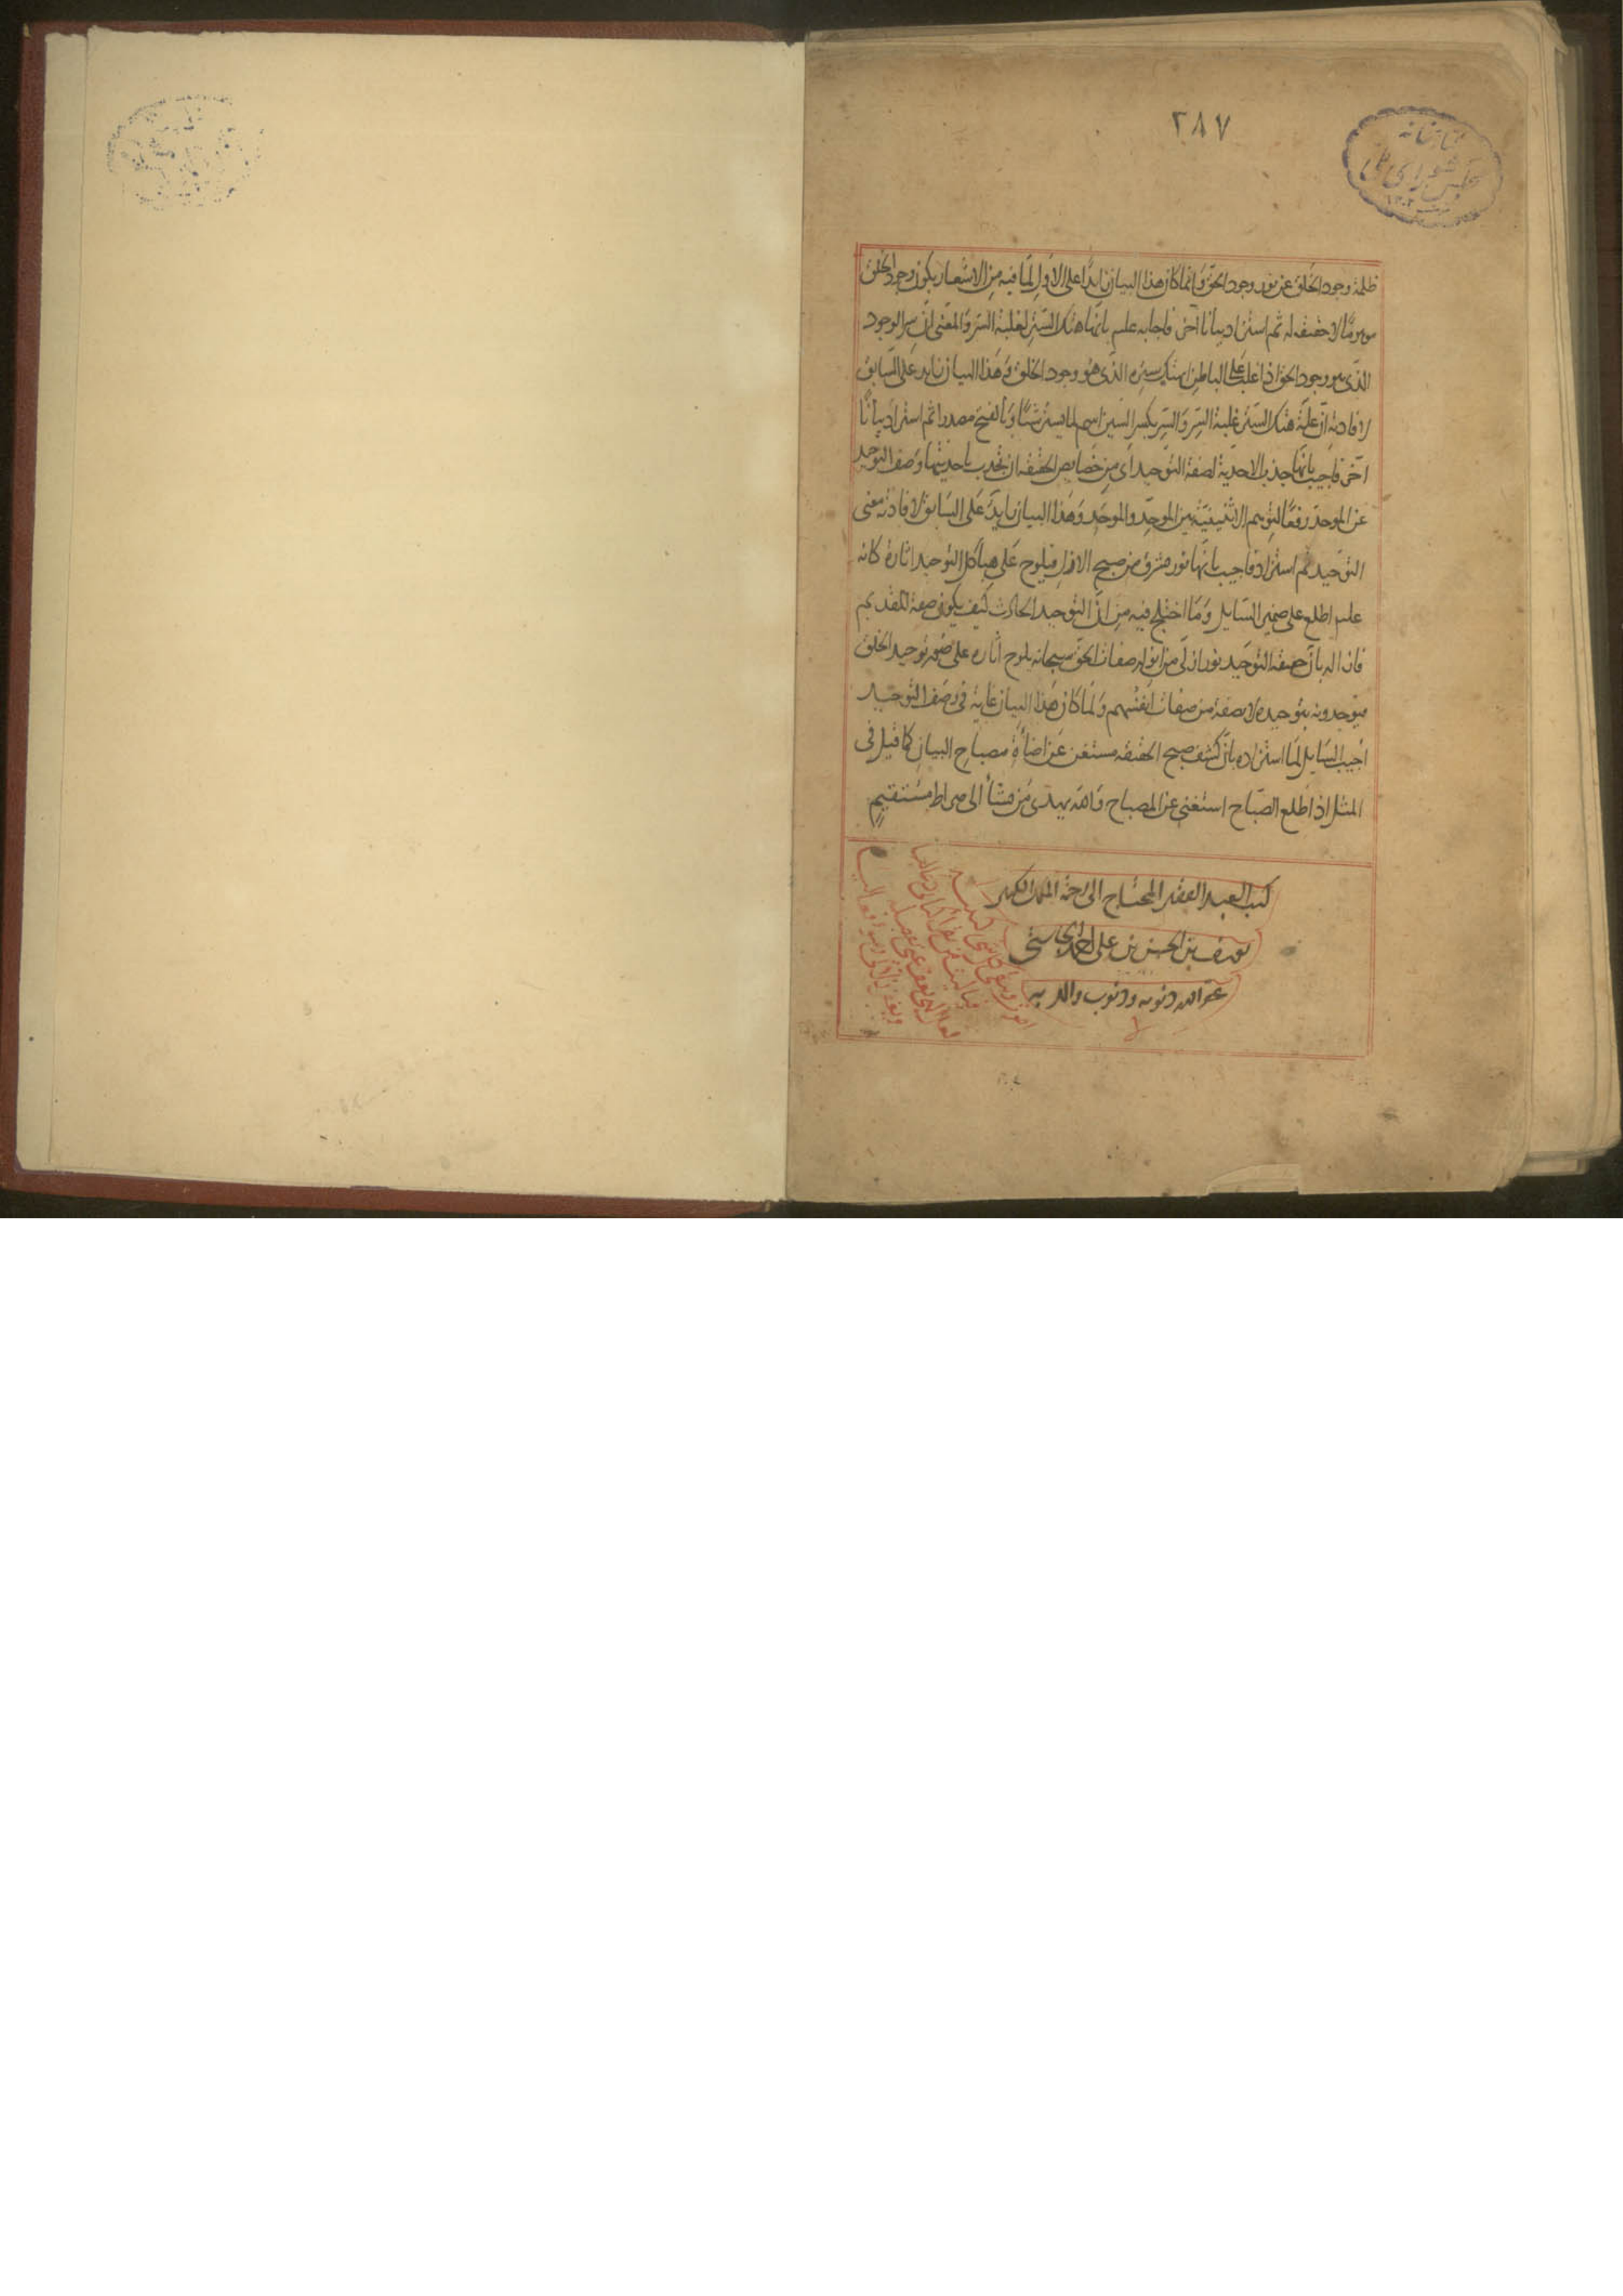 ٢٨٧
كتابخانه
مجلس شورای ملی
ظلمة وجود الخلق عن نور وجود الحق وانما كان هذا البيان زايدا على الاول لما فيه من الاشعار بكون وجود الخلق
موهومًا لا حقيقة له ثم استزاد بيانا آخر فاجابه علىه بانها هتك الستر لغلبة السر والمعنى ان سر الوجود
الذى هو وجود الحق اذا غلب على الباطن انهتك ستره الذى هو وجود الخلق وهذا البيان زايد على السابق
لافادته ان علة هتك الستر غلبة السر والستر بكسر السين اسم لما يستر شيئًا وبالفتح مصدر ثم استزاد بيانًا
آخر فاجيب بانها جذب الاحدية لصفة التوحيد اى من خصايص الحقيقة ان تجذب باحديتها وصف التوحيد
عن الموحد رفعًا لتوهم الاثنينية بين الموحِّد والموحَّد وهذا البيان زايد على السابق لافادته معنى
التوحيد ثم استزاد فاجيب بانها نور مشرق من صبح الازل فيلوح على هياكل التوحيد اثاره كانه
علىه اطلع على ضمير السايل وما اختلج فيه من ان التوحيد الحادث كيف يكون صفة للقديم
فازاله بان حقيقة التوحيد نور ازلى من انوار صفات الحق سبحانه يلوح اثاره على صور توحيد الخلق
فيوحدونه بتوحيده لا بصفة من صفات انفسهم ولما كان هذا البيان غاية فى وصف التوحيد
اجيب السايل لما استزاده بان كشف صبح الحقيقة مستغن عن اضاءة مصباح البيان كما قيل فى
المثل اذا طلع الصباح استغنى عن المصباح والله يهدى من يشاء الى صراط مستقيم
كتبه العبد الفقير المحتاج الى رحمة الملك الكبير
يوسف بن الحسن بن على
غفر الله ذنوبه وذنوب والديه